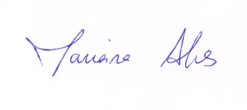 Mariana Alves